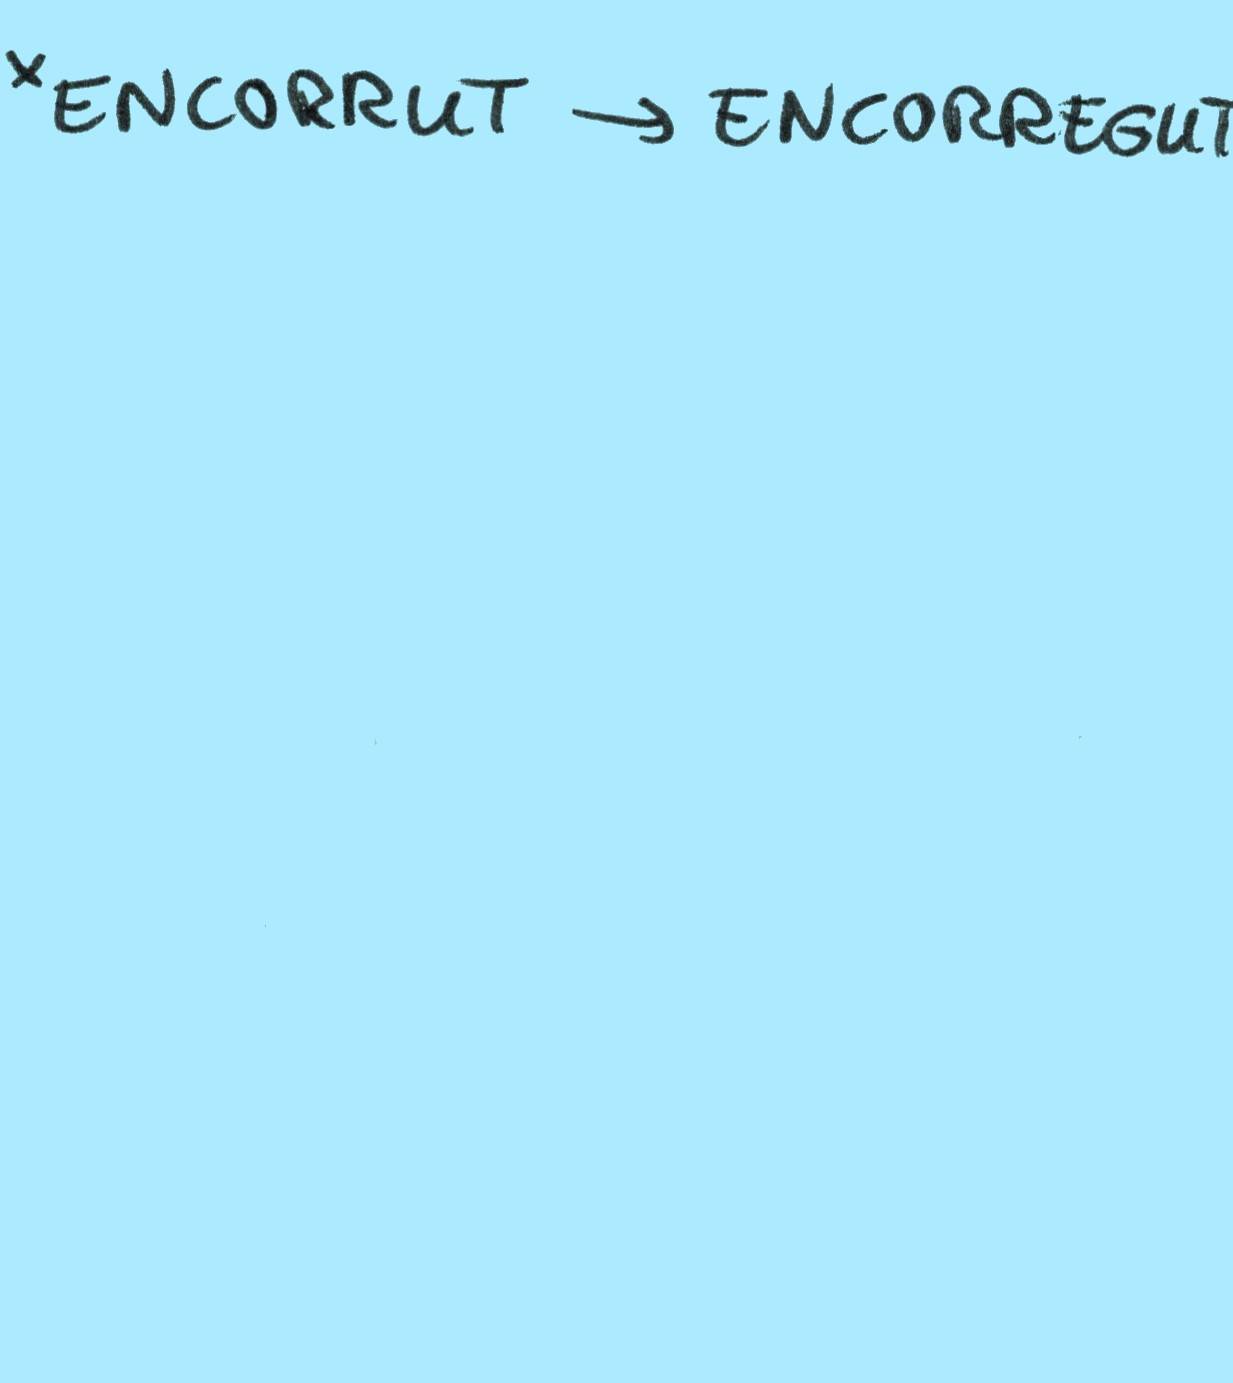 *ENCORRUT → ENCORREGUT